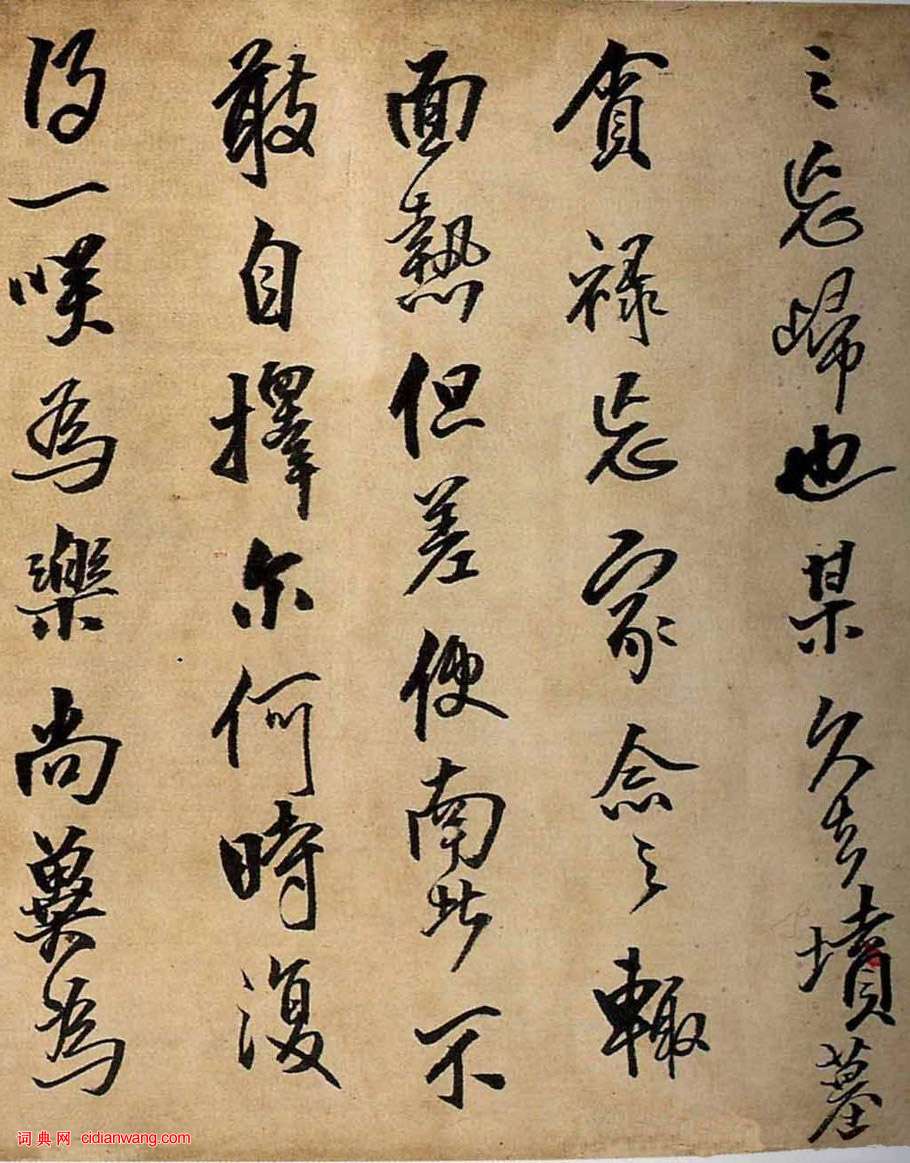 之忘歸也某久去墳墓
貪禄忘家念之輒
面熱但差使南北不
敢自擇尔何時復
得一咲為樂尚冀為
词典网 cidianwang.com